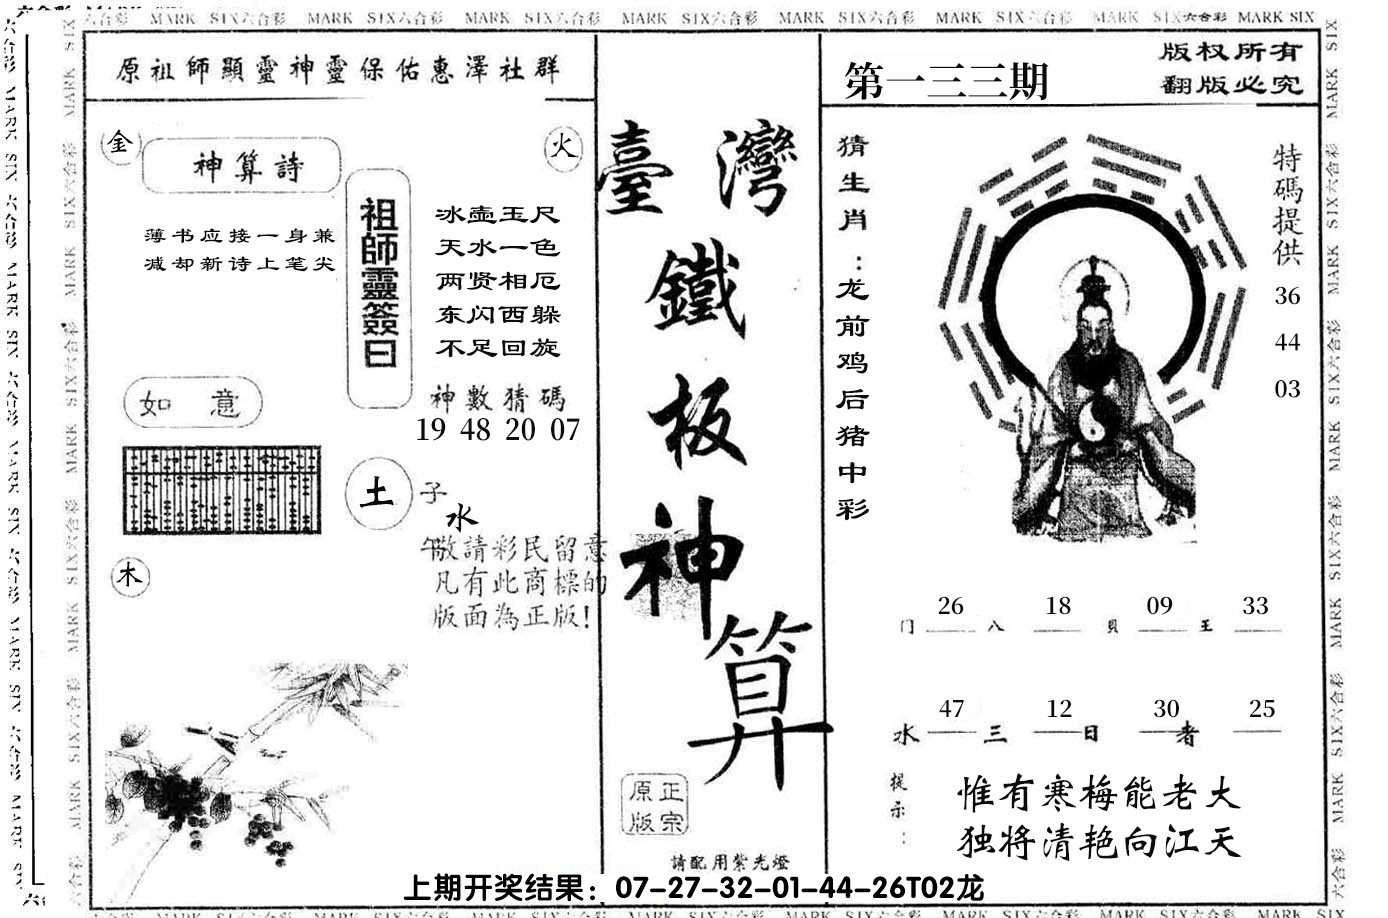 六合彩 MARK SIX六合彩 MARK SIX六合彩 MARK SIX六合彩 MARK SIX六合彩 MARK SIX六合彩 MARK SIX六合彩 MARK SIX六合彩 MARK SIX
原祖師顯靈神靈保佑惠澤社群
金
火
神算詩
薄书应接一身兼
减却新诗上笔尖
祖師靈簽曰
冰壶玉尺
天水一色
两贤相厄
东闪西躲
不足回旋
如意
神數猜碼
19 48 20 07
土
子
水
午
木
敬請彩民留意
凡有此商標的
版面為正版!
臺灣
鐵
板
神
算
正宗
原版
請配用紫光燈
第一三三期
版权所有
翻版必究
猜生肖：龙前鸡后猪中彩
特碼提供
36
44
03
26 18 09 33
门 八 贝 王
47 12 30 25
水 三 日 者
提示：
惟有寒梅能老大
独将清艳向江天
上期开奖结果：07-27-32-01-44-26T02龙